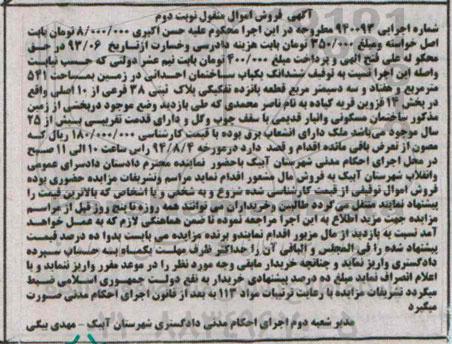 آگهی فروش اموال منقول نوبت دوم
شماره اجرایی ۹۴۰۰۹۳ مطروحه در این اجرا محکوم علیه حسن اکبری ۸/۰۰۰/۰۰۰ تومان بابت
اصل خواسته ومبلغ ۳۵۰/۰۰۰ تومان بابت هزینه دادرسی وخسارت ازتاریخ ۹۳/۰۶ در حق
محکو له علی فتح الهی و پرداخت مبلغ ۴۰۰/۰۰۰ تومان بابت نیم عشر دولتی که حسب نیابت
واصله این اجرا نسبت به توقیف ششدانگ یکباب ساختمان احداثی در زمین بمساحت ۵۴۱
مترمربع و هفتاد و سه دسیمتر مربع قطعه پانزده تفکیکی پلاک ثبتی ۳۸ فرعی از ۱۰ اصلی واقع
در بخش ۱۴ قزوین قریه کیاده به نام ناصر محمدی که طی بازدید وضع موجود دربخشی از زمین
مذکور ساختمان مسکونی وانبار قدیمی با سقف چوب وگل و دارای قدمت تقریبی بیش از ۲۵
سال موجود می‌باشد ملک دارای انشعاب برق بوده با قیمت کارشناسی ۱۸۰/۰۰۰/۰۰۰ ریال کـه
مصون از تعرض باقی مانده اقدام و قصد دارد درمورخه ۹۴/۸/۴ راس ساعت ۱۰ الی ۱۱ صبح
در محل اجرای احکام مدنی شهرستان آبیک باحضور نماینده محترم دادستان دادسرای عمومی
وانقلاب شهرستان آبیک به فروش مال مشعور اقدام نماید مراسم وتشریفات مزایده حضوری بوده
فروش اموال توقیفی از قیمت کارشناسی شده شروع و به شخص و یا اشخاص که بالاترین قیمت را
پیشنهاد نمایند منتقل می گردد طالبین وخریداران می توانند همه روزه تا پنج روز قبل از مراسم
مزایده جهت مزید اطلاع به این اجرا مراجعه نموده تا ضمن هماهنگی لازم که به عمل خواهـد
آمد نسبت به بازدید از مال مزبور اقدام نمایند‌و برنده مزایده می بایست بدوا ده درصد قیمت
پیشنهاد شده را فی المجلس و الباقی آن را حداکثر ظرف مهلت یکماه به حساب سپرده
دادگستری واریز نماید و چنانچه خریدار مابقی وجه مورد نظر را در موعد مقرر واریز ننماید و یا
اعلام انصراف نماید مبلغ ده درصد پیشنهادی خریدار به نفع دولت جمهوری اسلامی ضبط
میگردد تشریفات مزایده با رعایت ترتیبات مواد ۱۱۳ به بعد از قانون اجرای احکام مدنی صورت
میگیرد
مدیر شعبه دوم اجرای احکام مدنی دادگستری شهرستان آبیک – مهدی بیگی